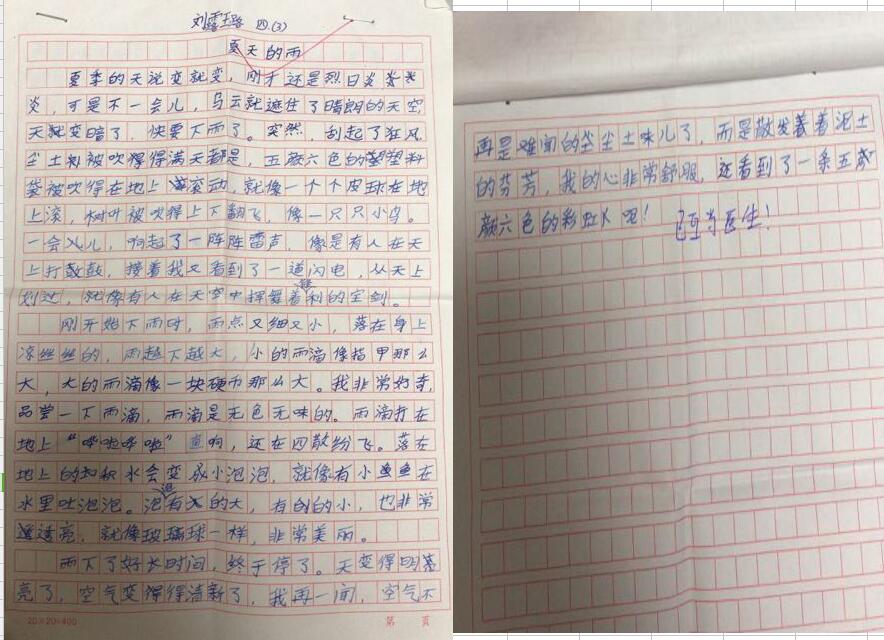 刘露 四.(3)
夏天的雨
夏季的天说变就变，刚才还是烈日炎炎
炎，可是不一会儿，乌云就遮住了晴朗的天空，
天就变暗了，快要下雨了。突然，刮起了狂风，
尘土被吹得满天都是，五颜六色的塑料
袋被吹得在地上滚动，就像一个个皮球在地
上滚，树叶被吹得上下翻飞，像一只只小鸟。
一会儿，响起了一阵阵雷声，像是有人在天
上打鼓，接着我又看到了一道闪电，从天上
划过，就像有人在天空中挥舞着利的宝剑。
刚开始下雨时，雨点又细又小，落在身上
凉丝丝的，雨越下越大，小的雨滴像指甲那么
大，大的雨滴像一块硬币那么大。我非常好奇，
品尝一下雨滴，雨滴是无色无味的。雨滴打在
地上“哗啦哗啦”直响，还在四散纷飞。落在
地上的积水会变成小泡泡，就像有小鱼在
水里吐泡泡。泡有的大，有的小，也非常
透亮，就像玻璃球一样，非常美丽。
雨下了好长时间，终于停了。天变得明
亮了，空气变得清新了，我再一闻，空气不
20×20=400 第 页
再是难闻的尘土味儿了，而是散发着泥土
的芬芳，我的心非常舒服，还看到了一条五
颜六色的彩虹呢！